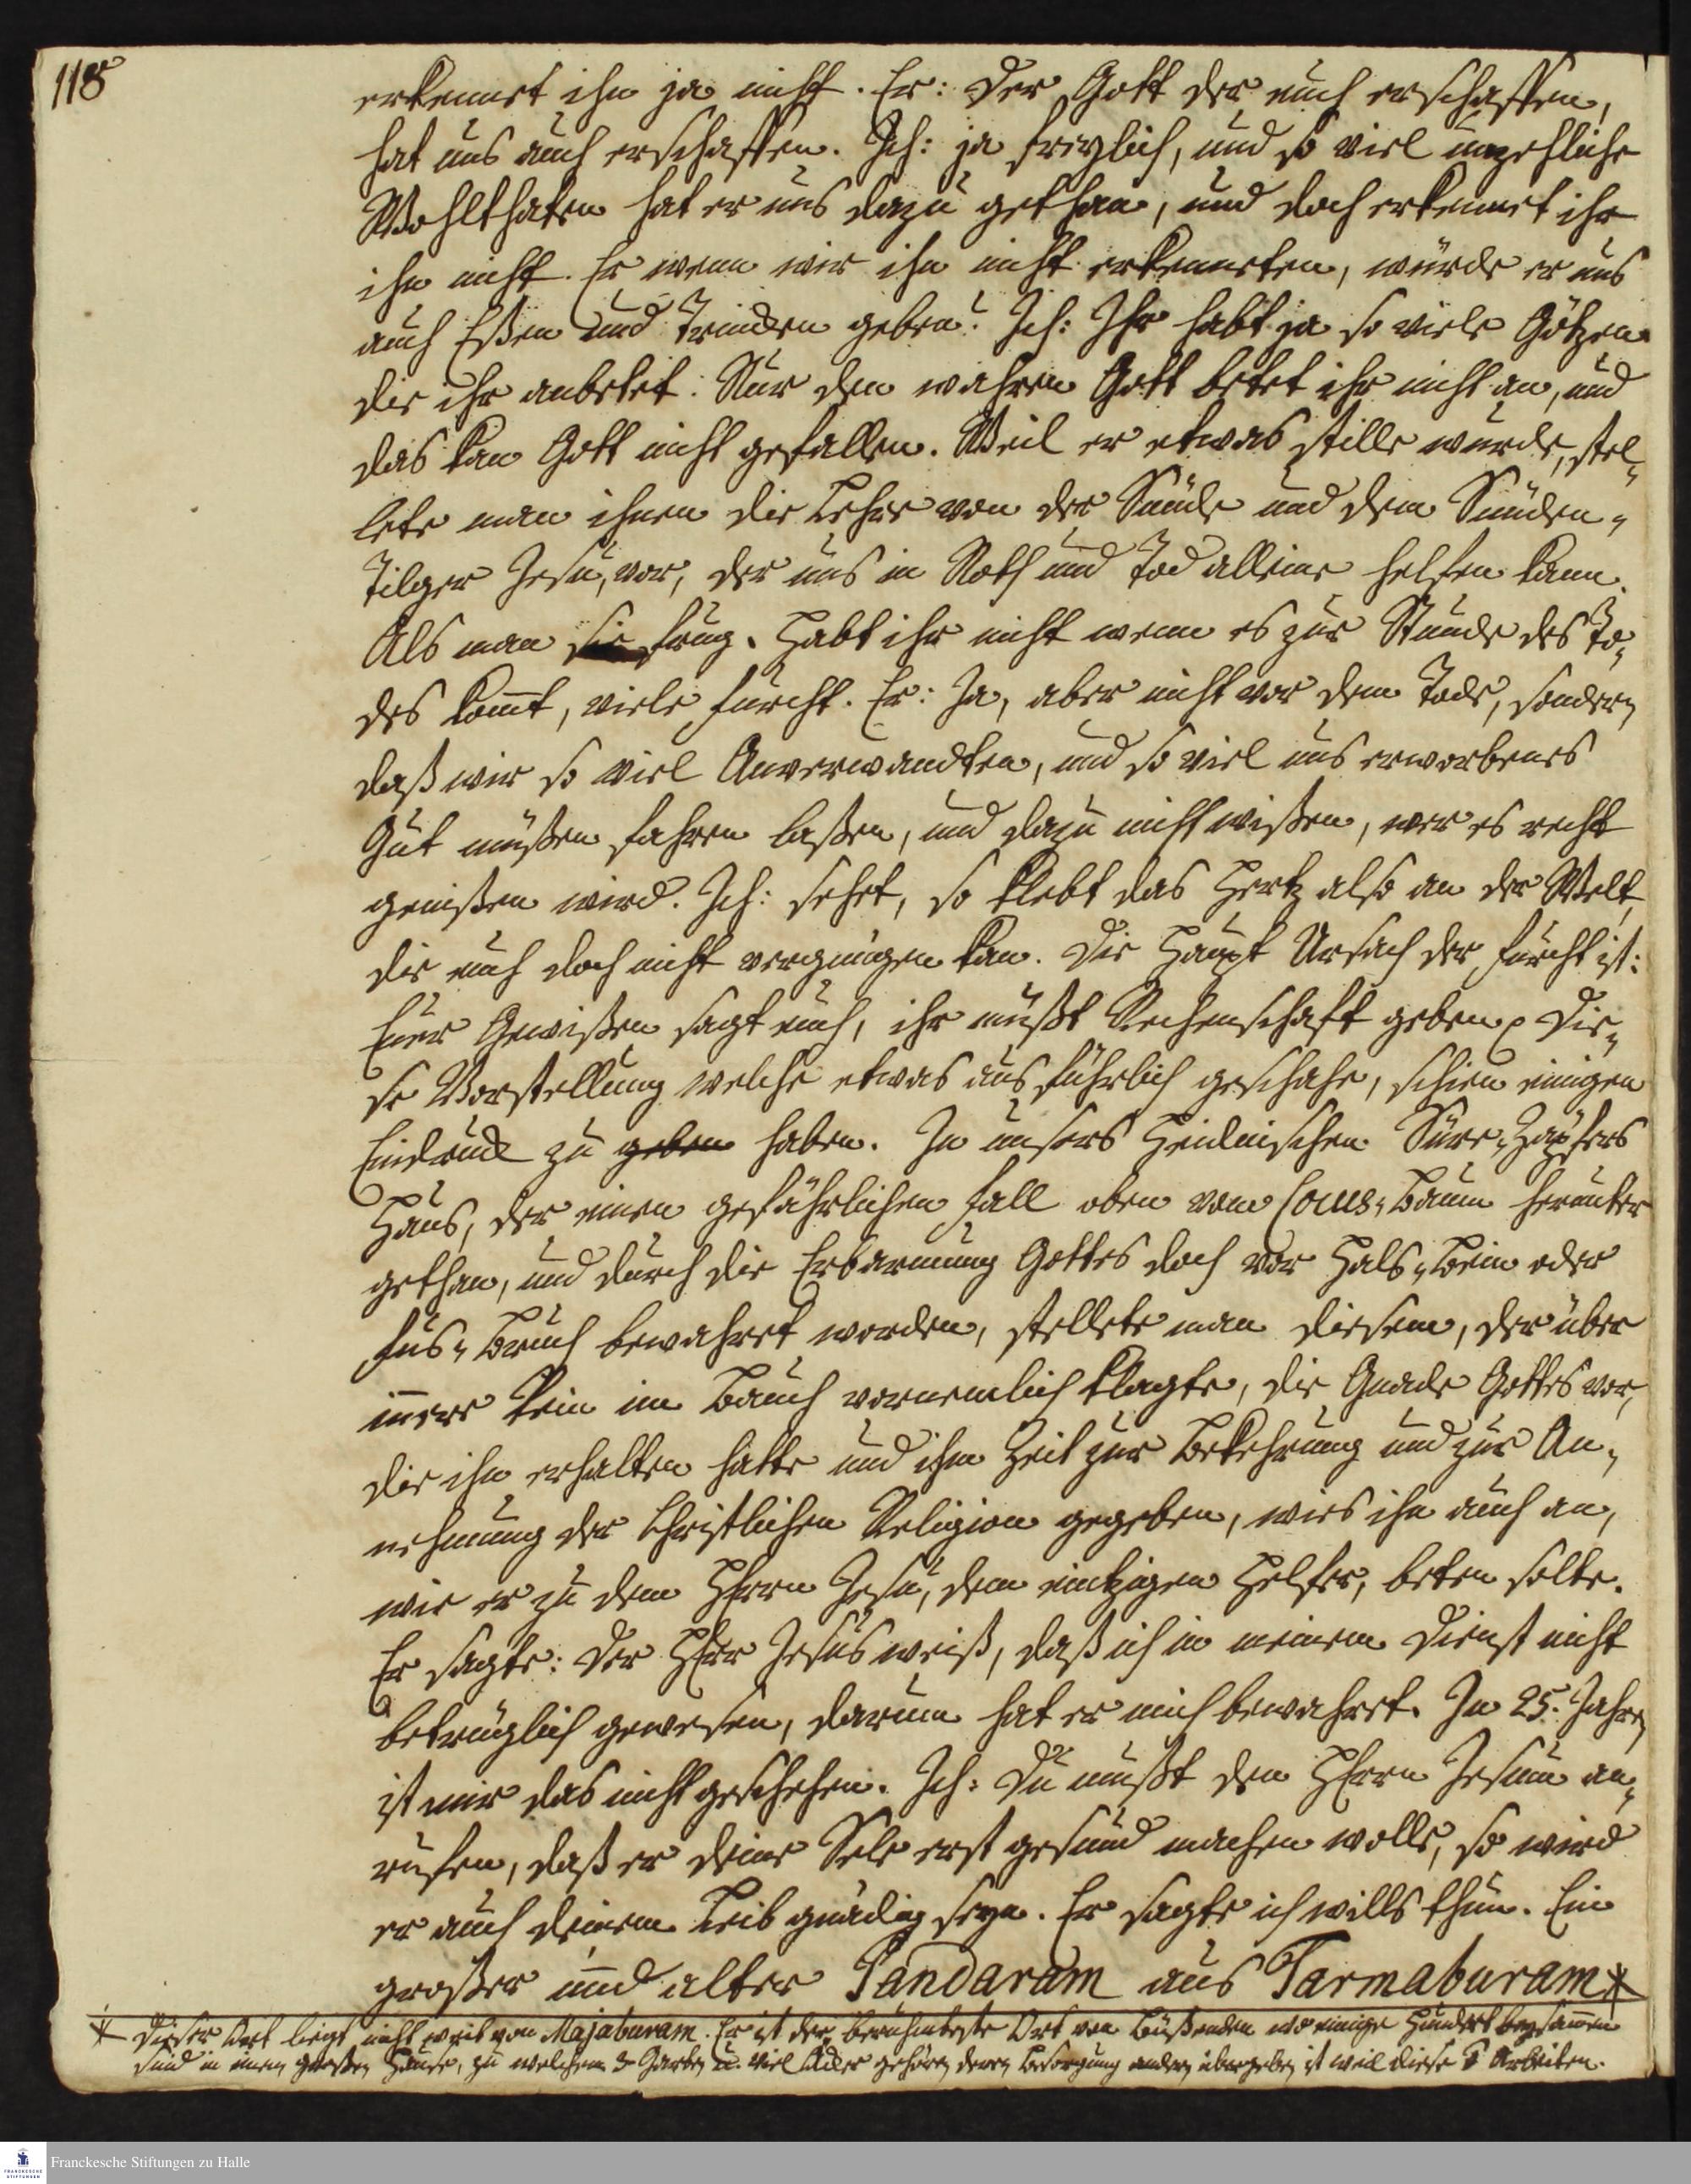 118
erkennet ihn ja nicht. Er: Der Gott der euch erschaffen,
hat uns auch erschaffen. Ich: ja freylich, und so viel unzehliche
Wohlthaten hat er uns dazu gethan, und doch erkennet ihr
ihn nicht. Er wenn wir ihn nicht erkenneten, würde er uns
auch Eßen und Trincken geben? Ich: Ihr habt ja so viele Götzen
die ihr anbetet. Nur den wahren Gott betet ihr nicht an, und
das kan Gott nicht gefallen. Weil er etwas stille wurde, stel-
lete man ihnen die Lehre von der Sünde und dem Sünden-
Tilger Jesu, vor, der uns in Noth und Tod alleine helfen kann.
Als man sie frug. Habt ihr nicht wenn es zur Stunde des To-
des komt, viele furcht. Er: Ja, aber nicht vor dem Tode, sondern
daß wir so viel Anverwandten, und so viel uns erworbenes
Gut müßen fahren laßen, und dazu nicht wißen, wer es recht
genißen wird. Ich: sehet, so klebt das Hertz also an der Welt,
die euch doch nicht vergnügen kan. Die Haupt Ursach der furcht ist:
Euer Gewißen sagt euch, ihr müßt Rechenschaft geben. Die-
se Vorstellung welche etwas ausführlich geschahe, schien einigen
Eindruck zu geben haben. In unsers Heidnischen Sure-Zapfers
Haus, der einen gefährlichen fall oben vom Cocus-Baum herunter
gethan, und durch die Erbarmung Gottes doch vor Hals-Bein oder
fus-Bruch bewahret worden, stellete man diesem, der über
innere Pein im Bauch vornemlich klagte, die Gnade Gottes vor,
die ihn erhalten hatte und ihm Zeit zur Bekehrung und zur An-
nehmung der Christlichen Religion gegeben, wies ihn auch an,
wie er zu dem HErrn Jesu, dem eintzigen Helfer, beten solte.
Er sagte: Der HErr Jesus weiß, daß ich in meinem Dienst nicht
betrüglich gewesen, darum hat er mich bewahret. In 25. Jahren
ist mir das nicht geschehen. Ich: Du mußt den HErrn Jesum an-
rufen, daß er deine Sele erst gesund machen wolle, so wird
er auch deinem Leib gnädig seyn. Er sagte ich wills thun. Ein
großer und alter Pandaram aus Tarmaburam *
* Dieser Ort liegt nicht weit von Majaburam. Er ist der berühmteste Ort von Büßenden wo einige Hundert beysammen
sind in einem großen Hause, zu welchem 3 Garten u. viel Äcker gehören deren Besorgung andern übergeben ist weil diese Arbeiten.
FRANCKESCHE STIFTUNGEN
Franckesche Stiftungen zu Halle